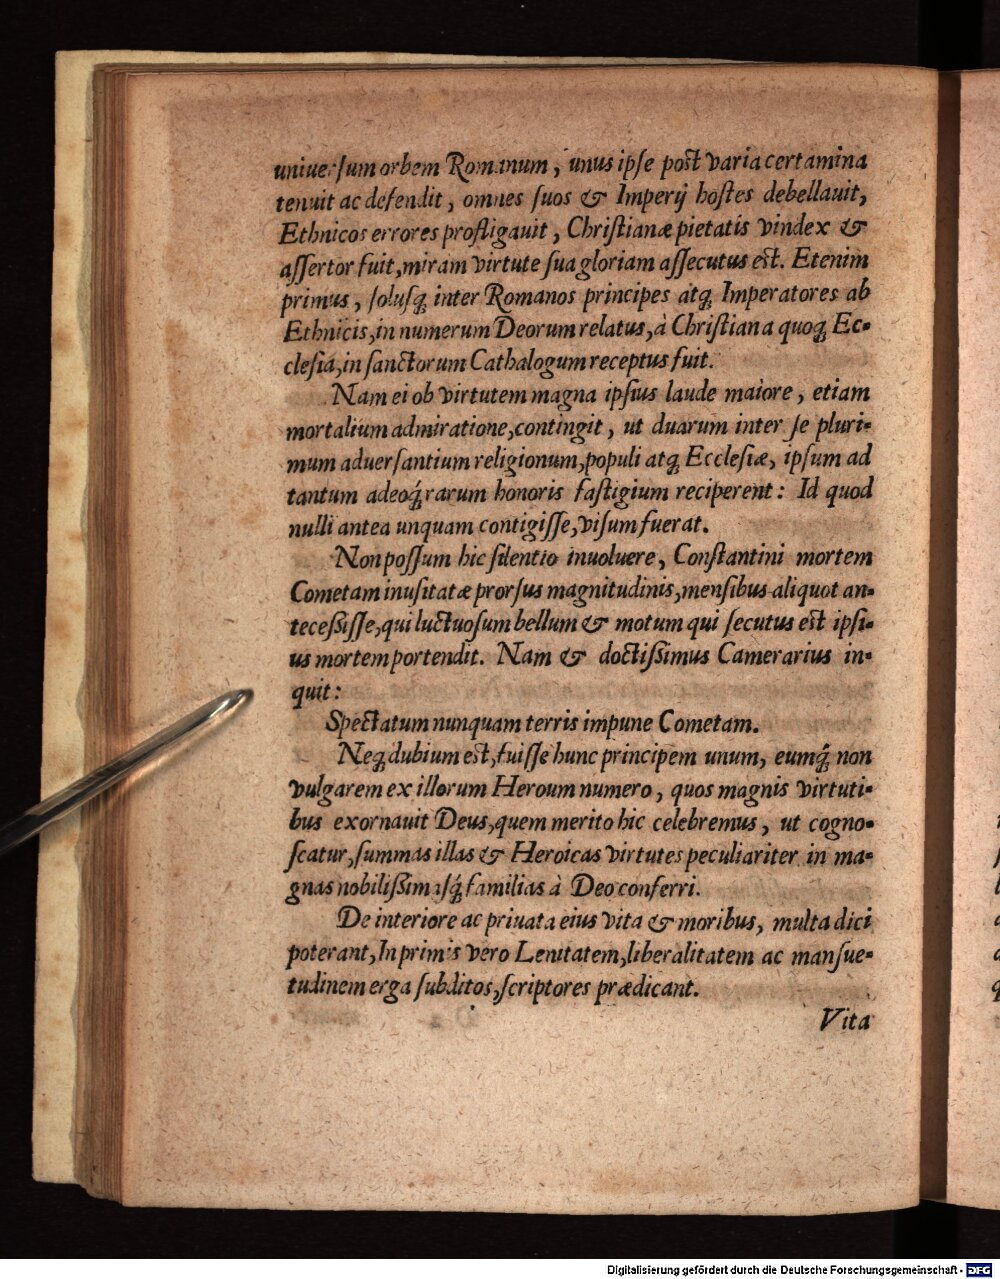 uniuerſum orbem Romanum, unus ipſe poſt varia certamina
tenuit ac defendit, omnes ſuos & Imperij hoſtes debellauit,
Ethnicos errores profligauit, Chriſtianæ pietatis vindex &
aſſertor fuit, miram virtute ſua gloriam aſſecutus eſt. Etenim
primus, ſolusq́; inter Romanos principes atq; Imperatores ab
Ethnicis, in numerum Deorum relatus, à Chriſtiana quoq; Ec-
cleſia, in ſanctorum Cathalogum receptus fuit.
Nam ei ob virtutem magna ipſius laude maiore, etiam
mortalium admiratione, contingit, ut duarum inter ſe pluri-
mum aduerſantium religionum, populi atq; Eccleſiæ, ipſum ad
tantum adeoq́; rarum honoris faſtigium reciperent: Id quod
nulli antea unquam contigiſſe, viſum fuerat.
Non poſſum hic ſilentio inuoluere, Conſtantini mortem
Cometam inuſitatæ prorſus magnitudinis, menſibus aliquot an-
teceſsiſſe, qui luctuoſum bellum & motum qui ſecutus eſt ipſi-
us mortem portendit. Nam & doctiſsimus Camerarius in-
quit:
Spectatum nunquam terris impune Cometam.
Neq; dubium eſt, fuiſſe hunc principem unum, eumq́; non
vulgarem ex illorum Heroum numero, quos magnis virtuti-
bus exornauit Deus, quem merito hic celebremus, ut cogno-
ſcatur, ſummas illas & Heroicas virtutes peculiariter in ma-
gnas nobiliſsimasq́; familias à Deo conferri.
De interiore ac priuata eius vita & moribus, multa dici
poterant, In primis vero Lenitatem, liberalitatem ac manſue-
tudinem erga ſubditos, ſcriptores prædicant.
Vita
Digitalisierung gefördert durch die Deutsche Forschungsgemeinschaft - DFG